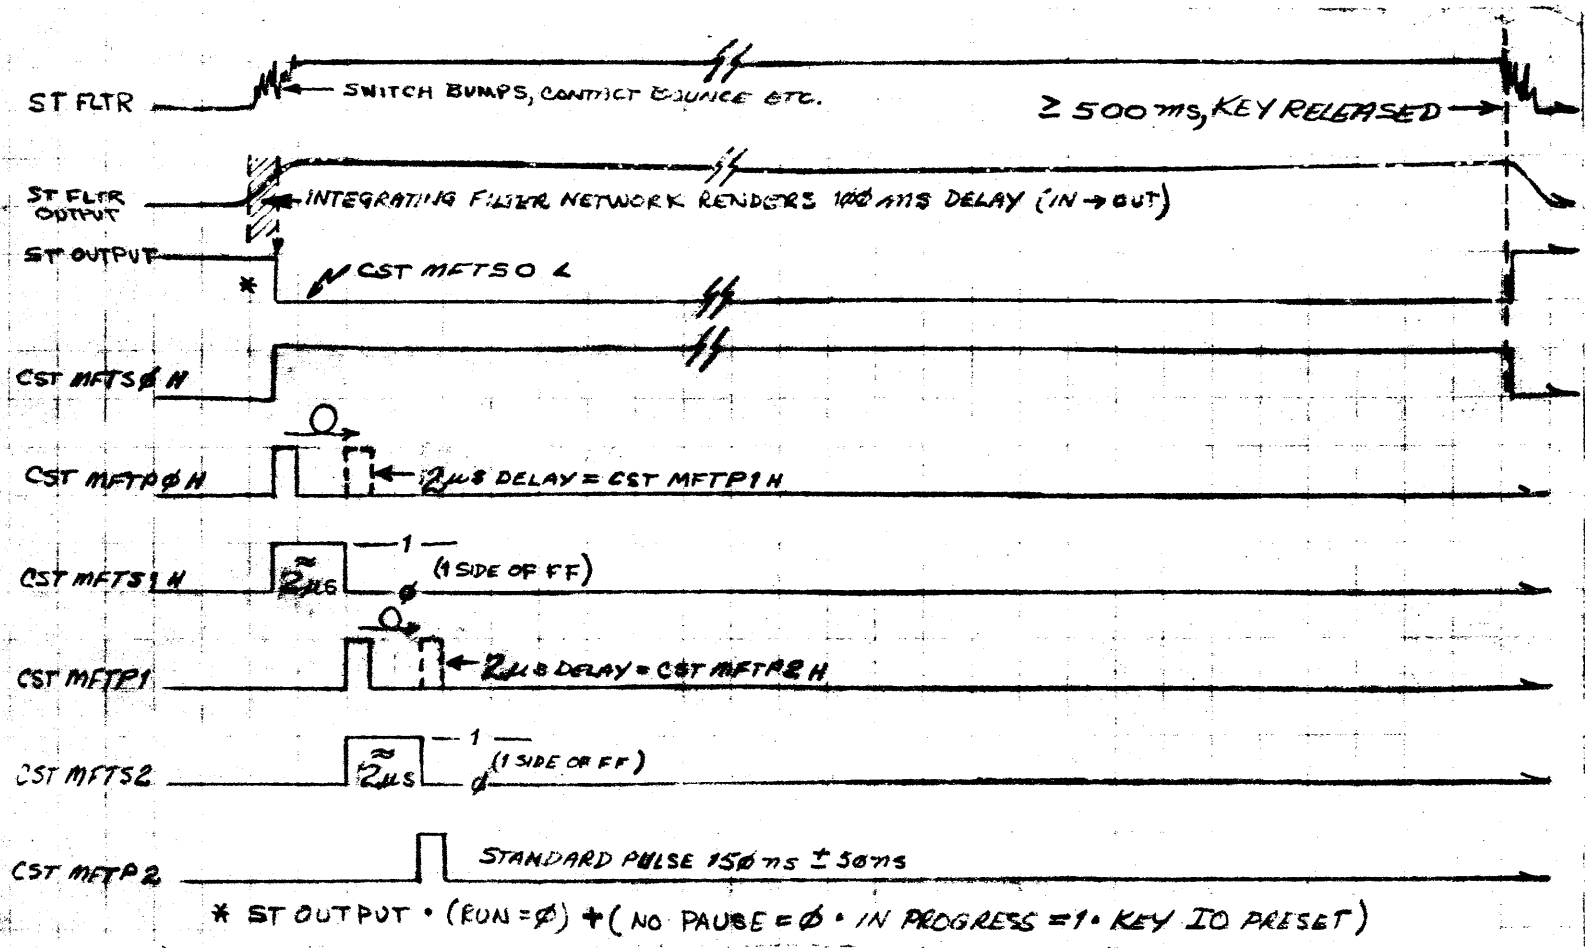 ST FLTR
SWITCH BUMPS, CONTACT BOUNCE ETC.
≥ 500 ms, KEY RELEASED
ST FLTR
OUTPUT
INTEGRATING FILTER NETWORK RENDERS 1ØØ ms DELAY (IN → OUT)
ST OUTPUT
*
CST MFTSO L
CST MFTSØ H
CST MFTPØ H
2μs DELAY = CST MFTP1 H
1
CST MFTS1 H
≈
2μs
(1 SIDE OF FF)
Ø
CST MFTP1
2μs DELAY = CST MFTP2 H
1
CST MFTS2
≈
2μs
(1 SIDE OF FF)
Ø
CST MFTP2
STANDARD PULSE 15Ø ns ± 50ns
* ST OUTPUT • (RUN = Ø) + (NO PAUSE = Ø • IN PROGRESS = 1 • KEY IO PRESET)